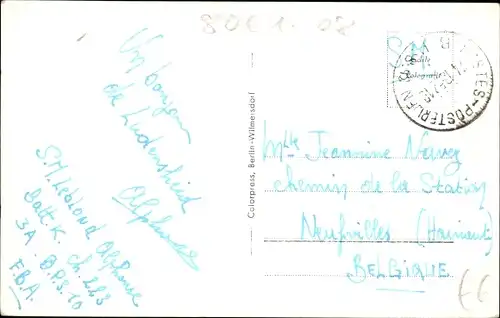 8061.08
Un bonjour
de Ludensheid
Alphonse
S.M. Leblond Alphonse
Batt. K. Ch. 223
3A. B.P.S. 10
F.B.A.
Colorpress, Berlin-Wilmersdorf
S.M.
POSTES-POSTERIJEN
Mlle Jeannine Navez
Chemin de la Station
Neufvilles (Hainaut)
BELGIQUE
€6